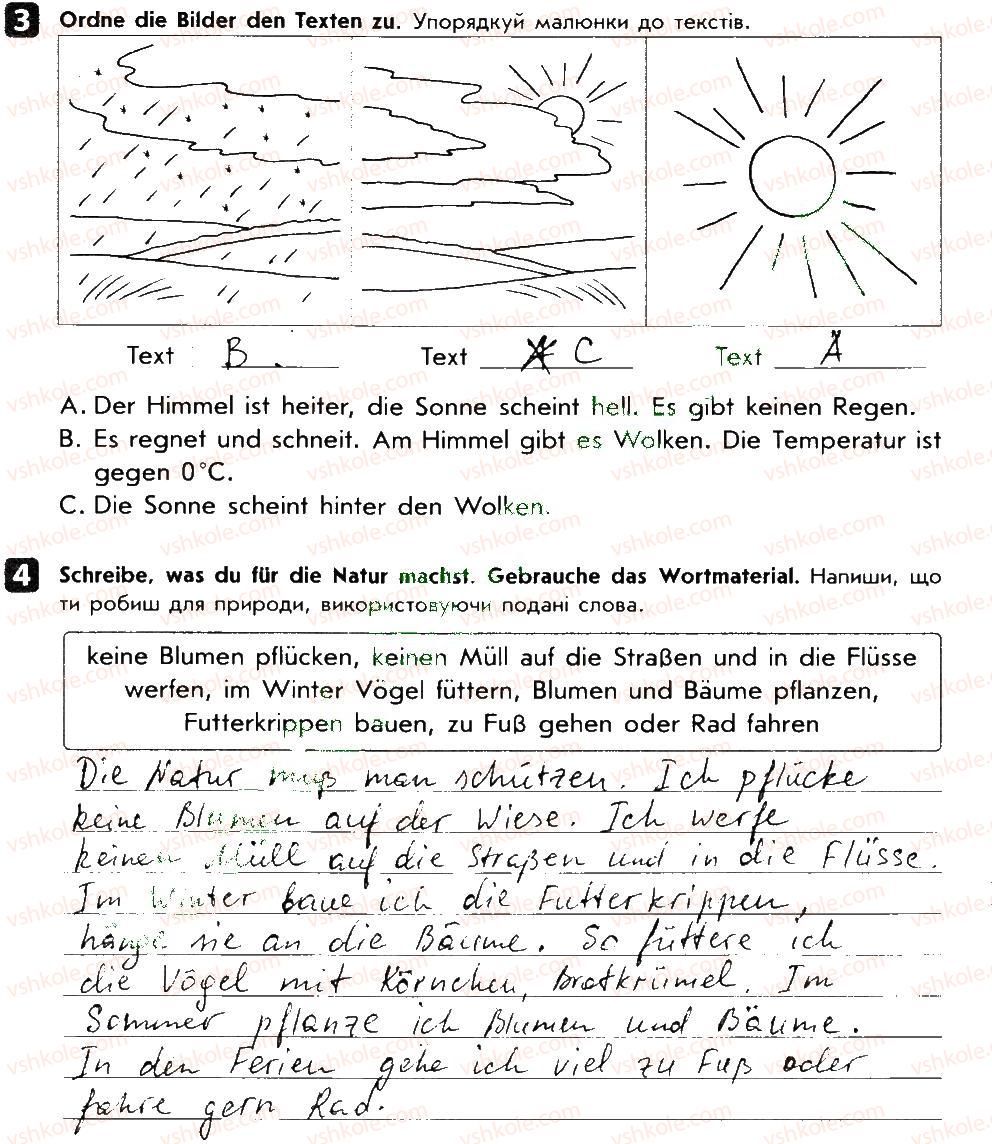 3 Ordne die Bilder den Texten zu. Упорядкуй малюнки до текстів.
Text B Text C Text A
A. Der Himmel ist heiter, die Sonne scheint hell. Es gibt keinen Regen.
B. Es regnet und schneit. Am Himmel gibt es Wolken. Die Temperatur ist
gegen 0°C.
C. Die Sonne scheint hinter den Wolken.
4 Schreibe, was du für die Natur machst. Gebrauche das Wortmaterial. Напиши, що
ти робиш для природи, використовуючи подані слова.
keine Blumen pflücken, keinen Müll auf die Straßen und in die Flüsse
werfen, im Winter Vögel füttern, Blumen und Bäume pflanzen,
Futterkrippen bauen, zu Fuß gehen oder Rad fahren
Die Natur muß man schützen. Ich pflücke
keine Blumen auf der Wiese. Ich werfe
keinen Müll auf die Straßen und in die Flüsse.
Im Winter baue ich die Futterkrippen,
hänge sie an die Bäume. So füttere ich
die Vögel mit Körnchen, Brotkrümel. Im
Sommer pflanze ich Blumen und Bäume.
In den Ferien gehe ich viel zu Fuß oder
fahre gern Rad.
vshkole.com